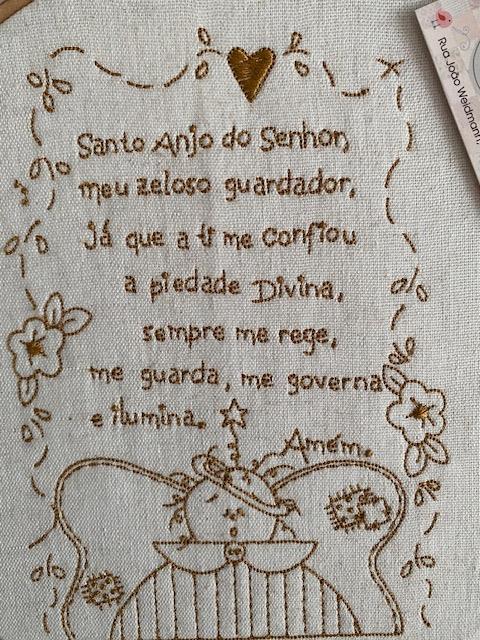 Santo Anjo do Senhor,
meu zeloso guardador,
já que a ti me confiou
a piedade Divina,
sempre me rege,
me guarda, me governa
e ilumina.
Amém.
Rua João Weidmann,